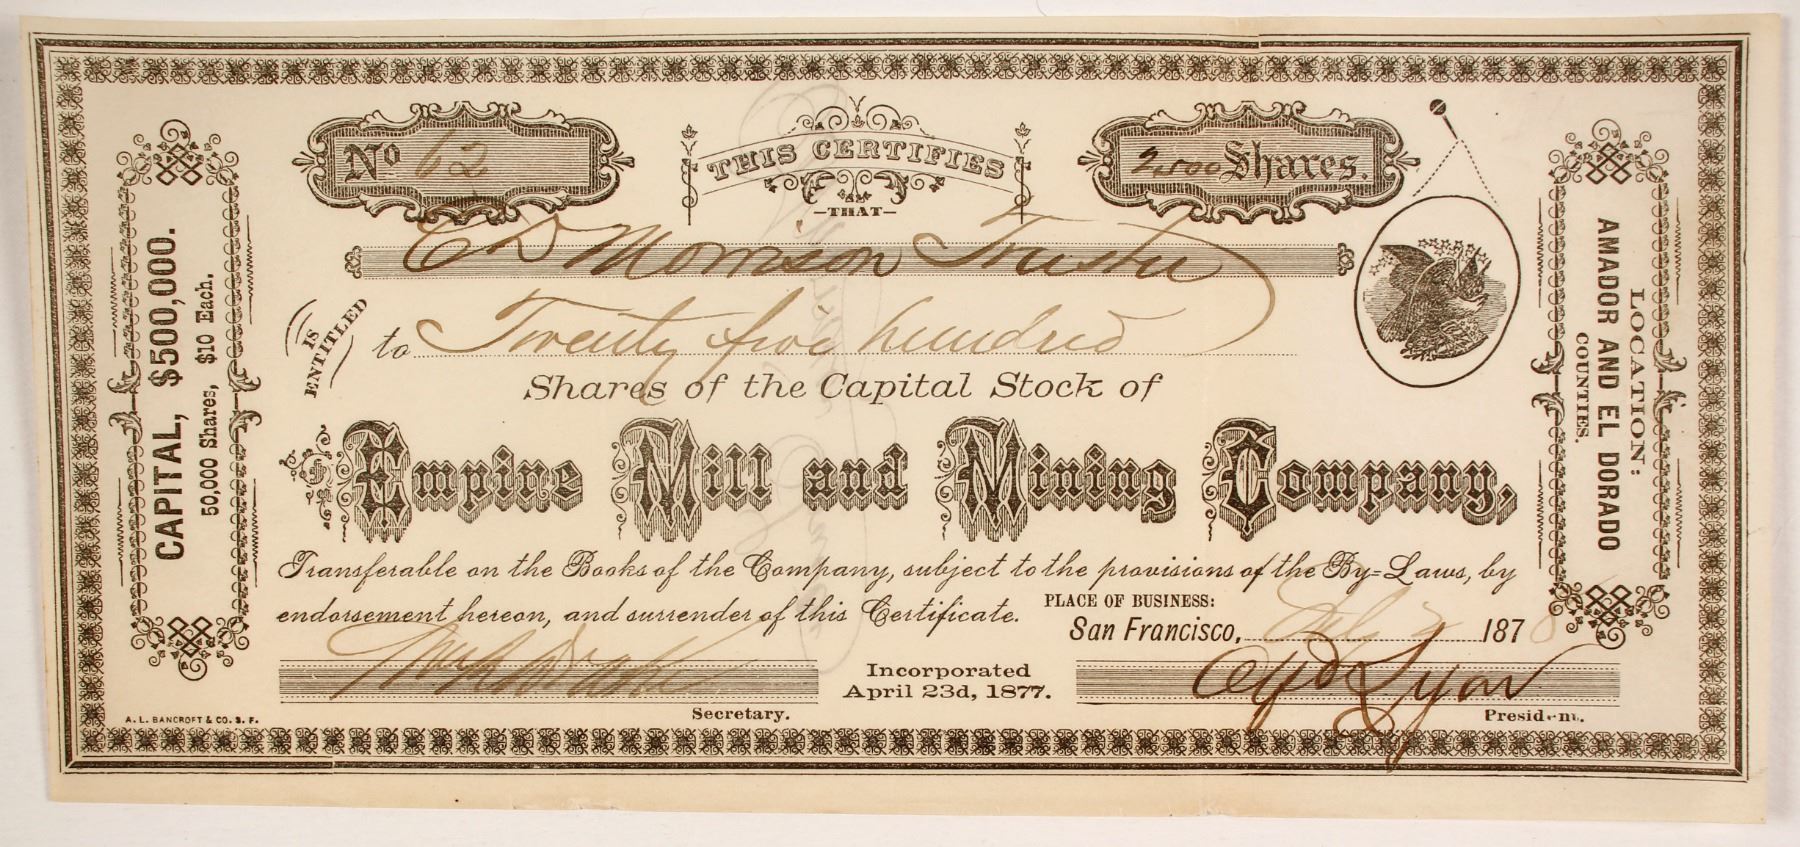 CAPITAL, $500,000.
50,000 Shares, $10 Each.
No 62
THIS CERTIFIES
—THAT—
2,500 Shares.
E D Morrison Trustee
IS
ENTITLED
to Twenty five hundred
Shares of the Capital Stock of
Empire Mill and Mining Company,
Transferable on the Books of the Company, subject to the provisions of the By-Laws, by
endorsement hereon, and surrender of this Certificate.
PLACE OF BUSINESS:
San Francisco, 1878
Incorporated
April 23d, 1877.
Secretary.
Lyon
President.
A. L. BANCROFT & CO. S. F.
LOCATION:
AMADOR AND EL DORADO
COUNTIES.